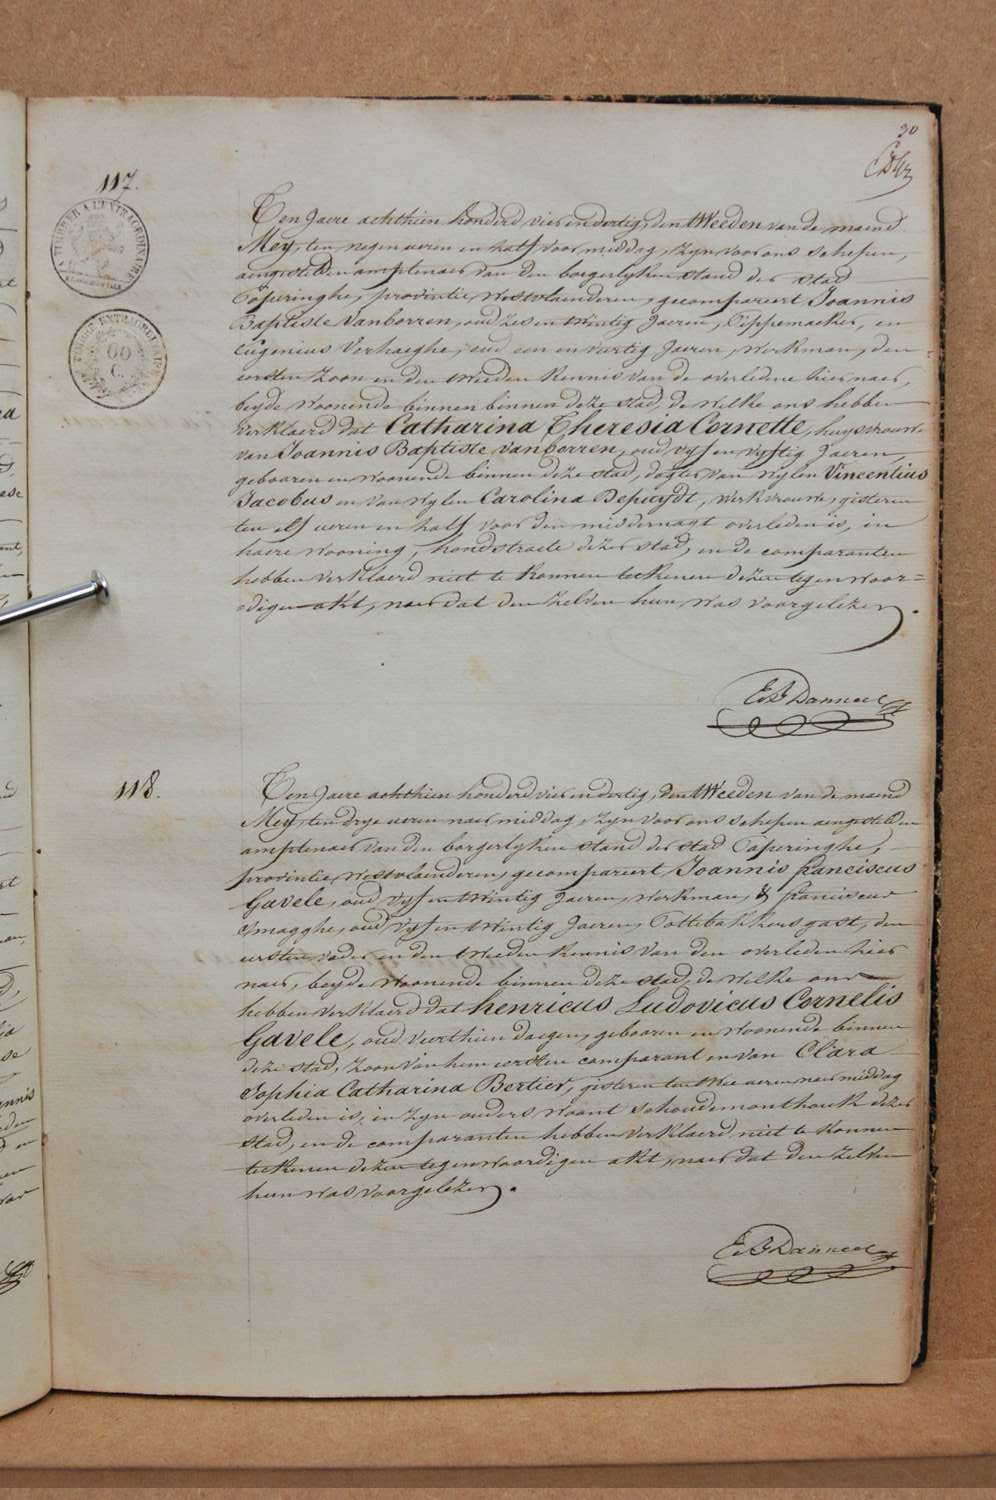 30
117.
TIMBRE A L'EXTRAORDINAIRE
TIMBRE EXTRAORDINAIRE
60
C.
Ten Jaere achthien honderd vier en dertig, den tWeeden van de maend
Mey, ten negen ueren en half voor middag, zyn voor ons schepen,
aengestelden amptenaer van den borgerlyken stand der stad
Poperinghe, provintie Westvlaenderen, gecompareert Joannis
Baptiste Vanborren, oud zes en twintig Jaeren, Pippemaeker, en
Eugenius Verhaeghe, oud een en veertig Jaeren, Werkman, den
eersten Zoon en den tweeden Kennis van de overledene hier naer,
beyde Woonende binnen binnen deze stad, de welke ons hebben
verklaerd dat Catharina Theresia Cornette, huysvrouwe
van Joannis Baptiste Vanborren, oud vyf en vyftig Jaeren,
gebooren en woonende binnen deze stad, dogter van Wylen Vincentius
Jacobus en van Wylen Carolina Depuydt, Werkvrouwe, gisteren
ten elf ueren en half voor den middernagt overleden is, in
haere wooning, hondstraete dezer stad, en de comparanten
hebben verklaerd niet te konnen teekenen dezen tegenwoor=
digen akt, naer dat den zelven hun was voorgelezen.
E. B Danneel
118.
Ten Jaere achthien honderd vier en dertig, den tWeeden van de maend
Mey, ten drye ueren naer middag, zyn voor ons schepen aengestelden
amptenaer van den borgerlyken stand der stad Poperinghe,
provintie Westvlaenderen, gecompareert Joannis franciscus
Gavele, oud vyf en twintig Jaeren, Werkman, & franciscus
Smagghe, oud vyf en twintig Jaeren, Pottebakkersgast, den
eersten vader en den tweeden kennis van den overleden hier
naer, beyde woonende binnen deze stad, de welke ons
hebben verklaerd dat henricus Ludovicus Cornelis
Gavele, oud veerthien daegen, gebooren en woonende binnen
deze stad, zoon van hem eersten comparant en van Clara
Sophia Catharina Bertier, gisteren ten twee ueren naer middag
overleden is, in zyn ouders woont schoudemonthouk dezer
stad, en de comparanten hebben verklaerd niet te konnen
teekenen dezen tegenwoordigen akt, naer dat den zelven
hun was voorgelezen.
E. B Danneel